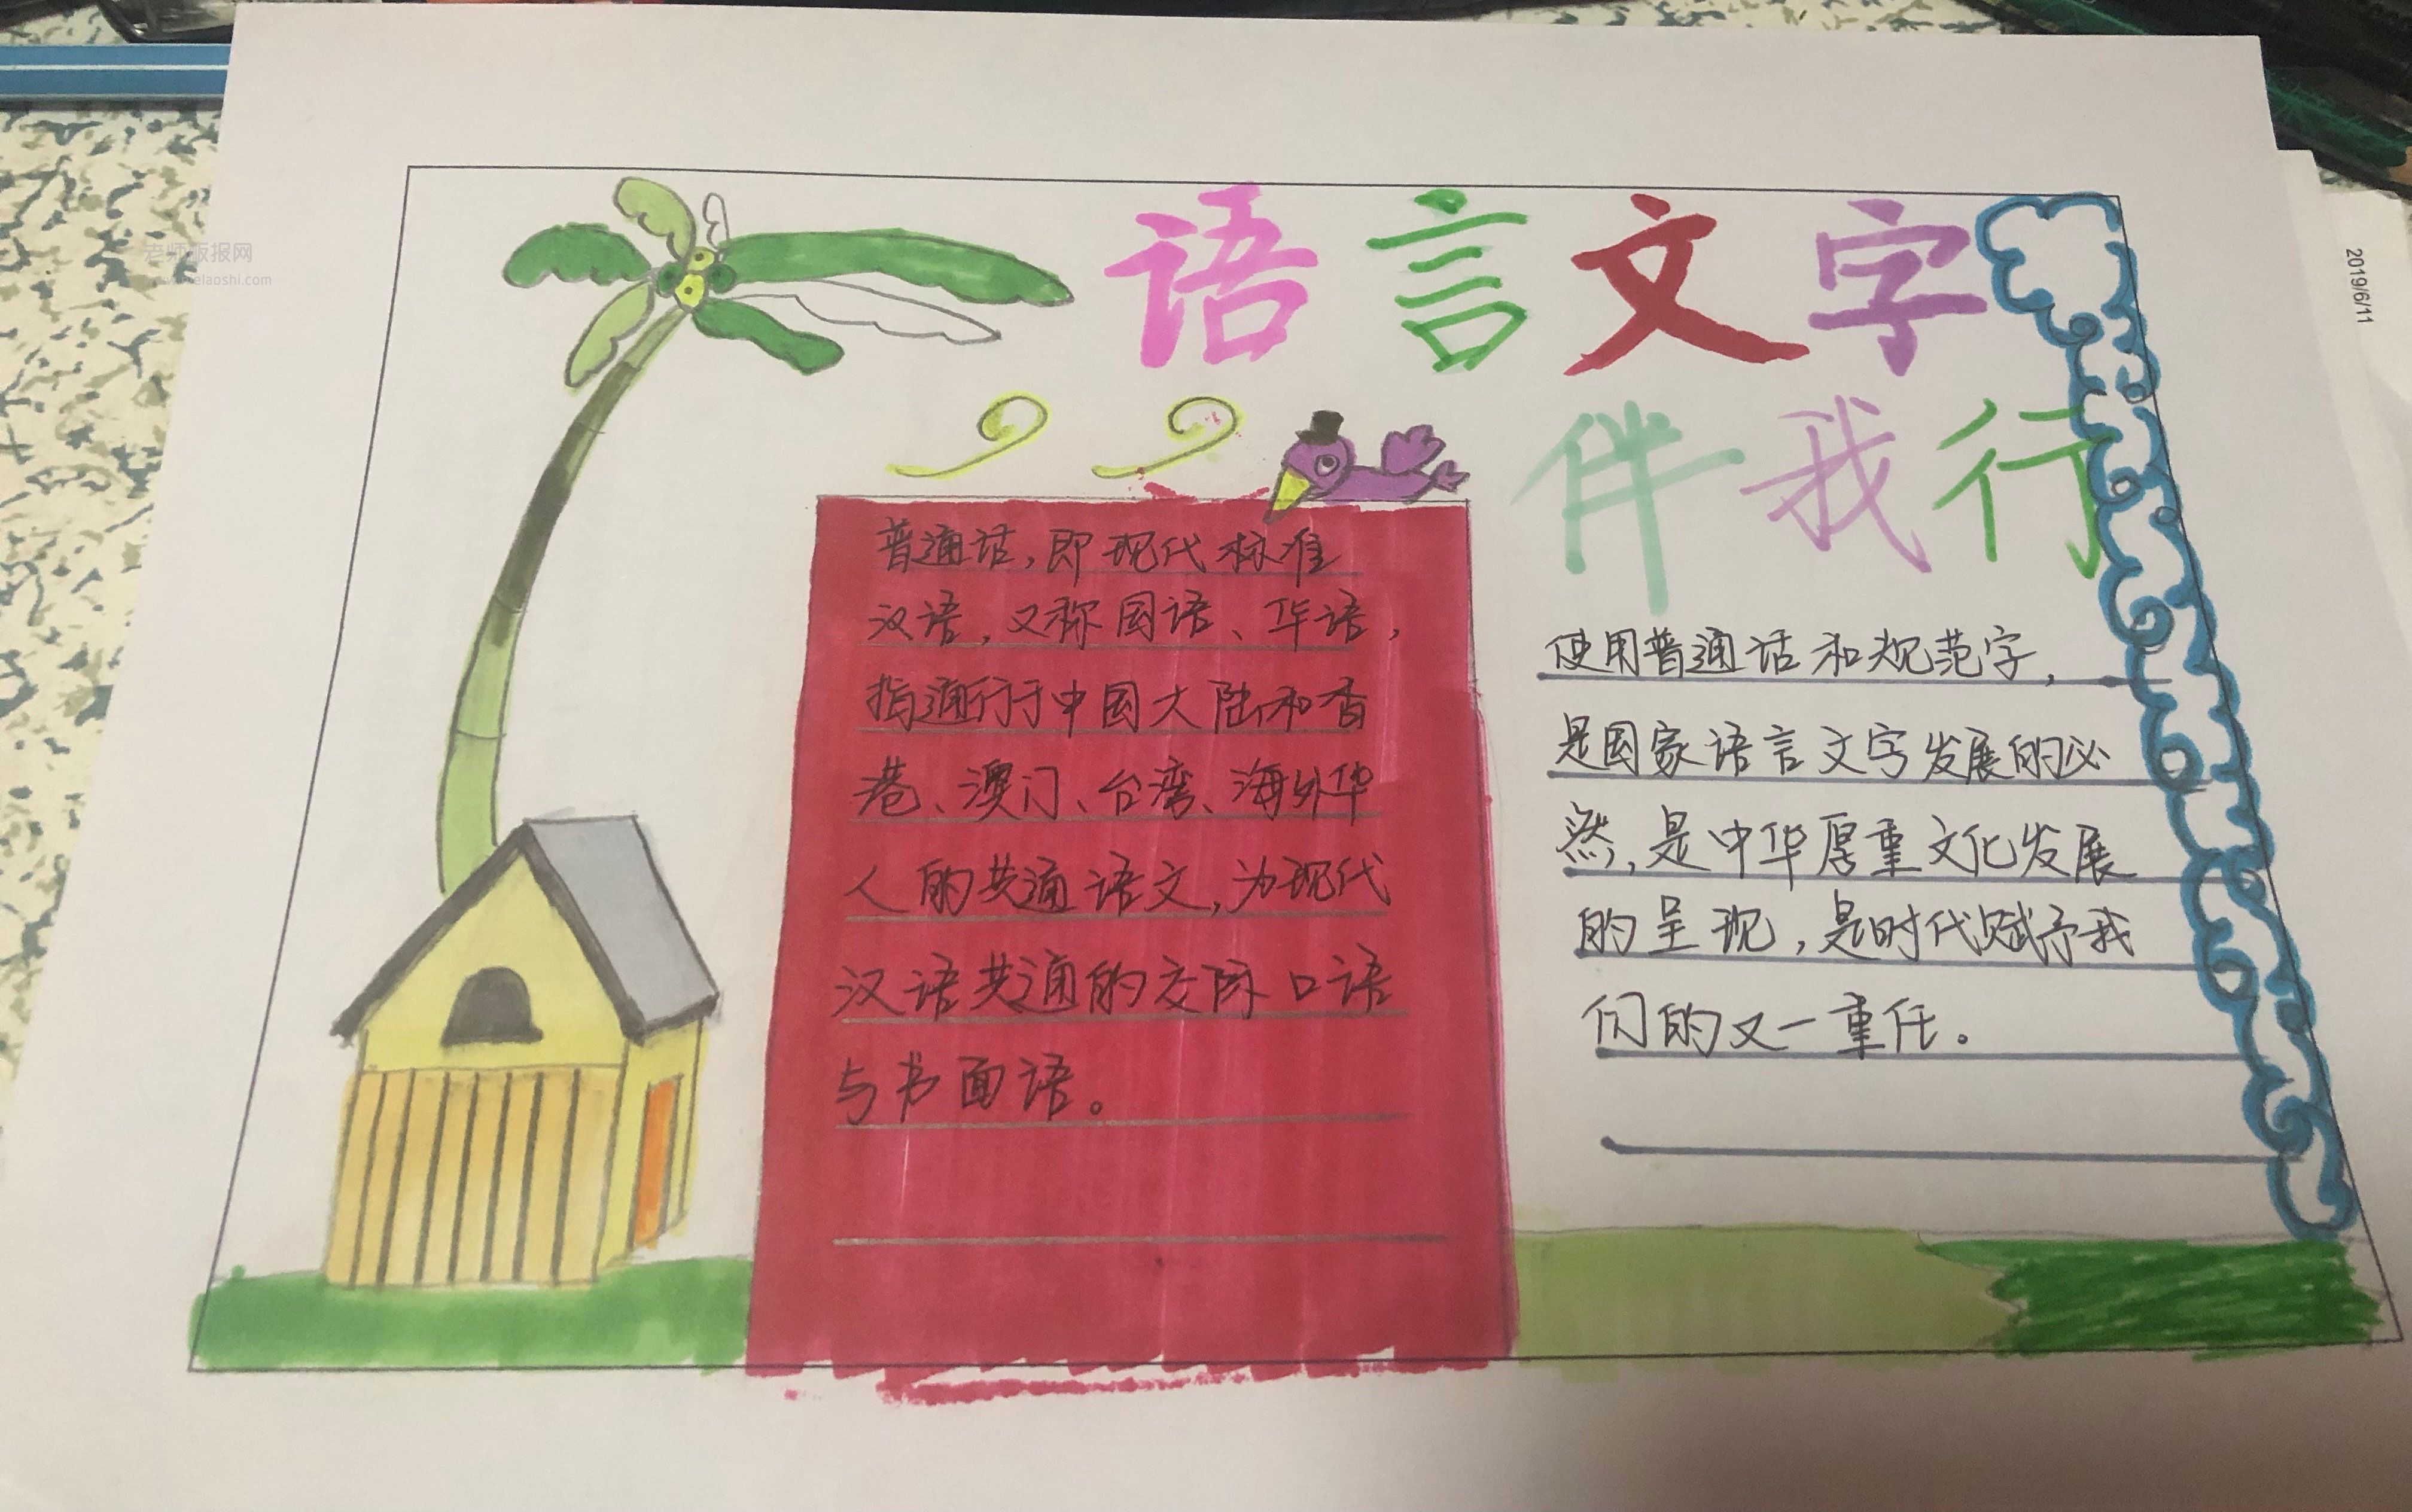 语言文字
伴我行
普通话，即现代标准
汉语，又称国语、华语，
指通行于中国大陆和香
港、澳门、台湾、海外华
人的共通语文，为现代
汉语共通的交际口语
与书面语。
使用普通话和规范字，
是国家语言文字发展的必
然，是中华厚重文化发展
的呈现，是时代赋予我
们的又一重任。
2019/6/11
老师板报网